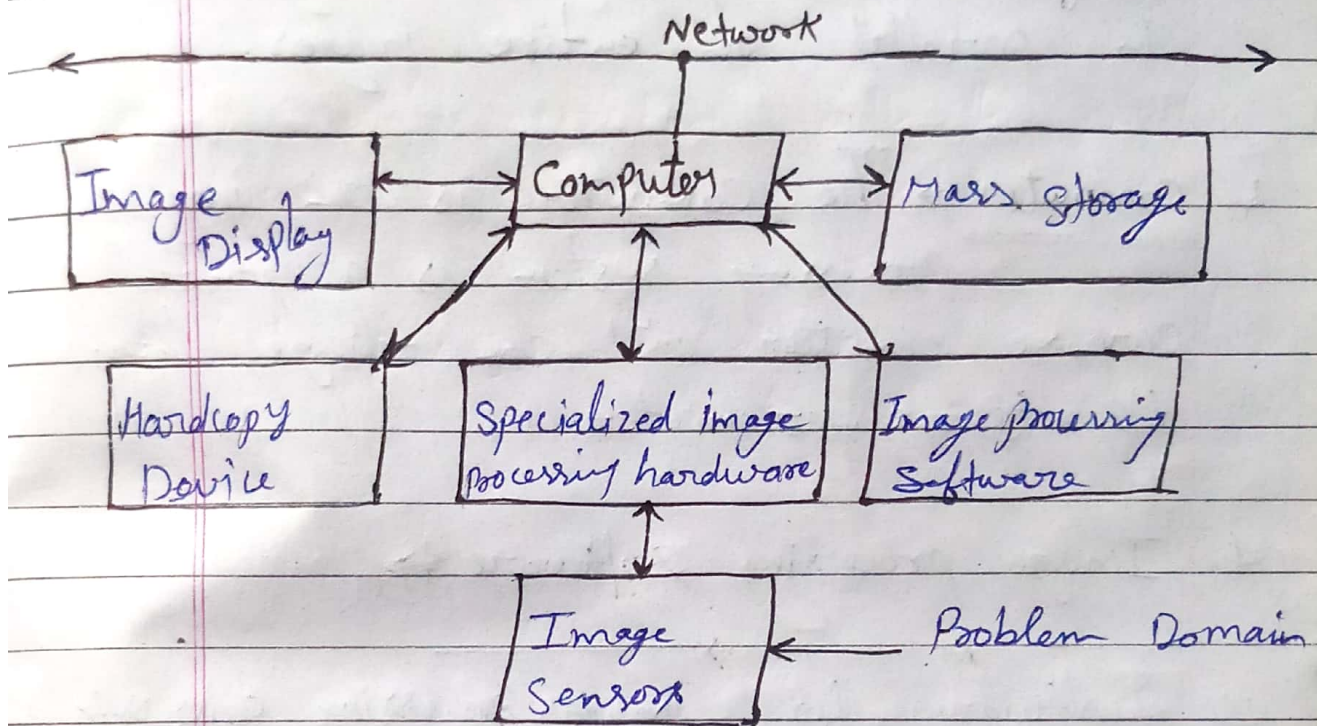 Network
Computer
Image
Display
Mass storage
Hardcopy
Device
Specialized image
processing hardware
Image processing
Software
Image
Sensors
Problem Domain